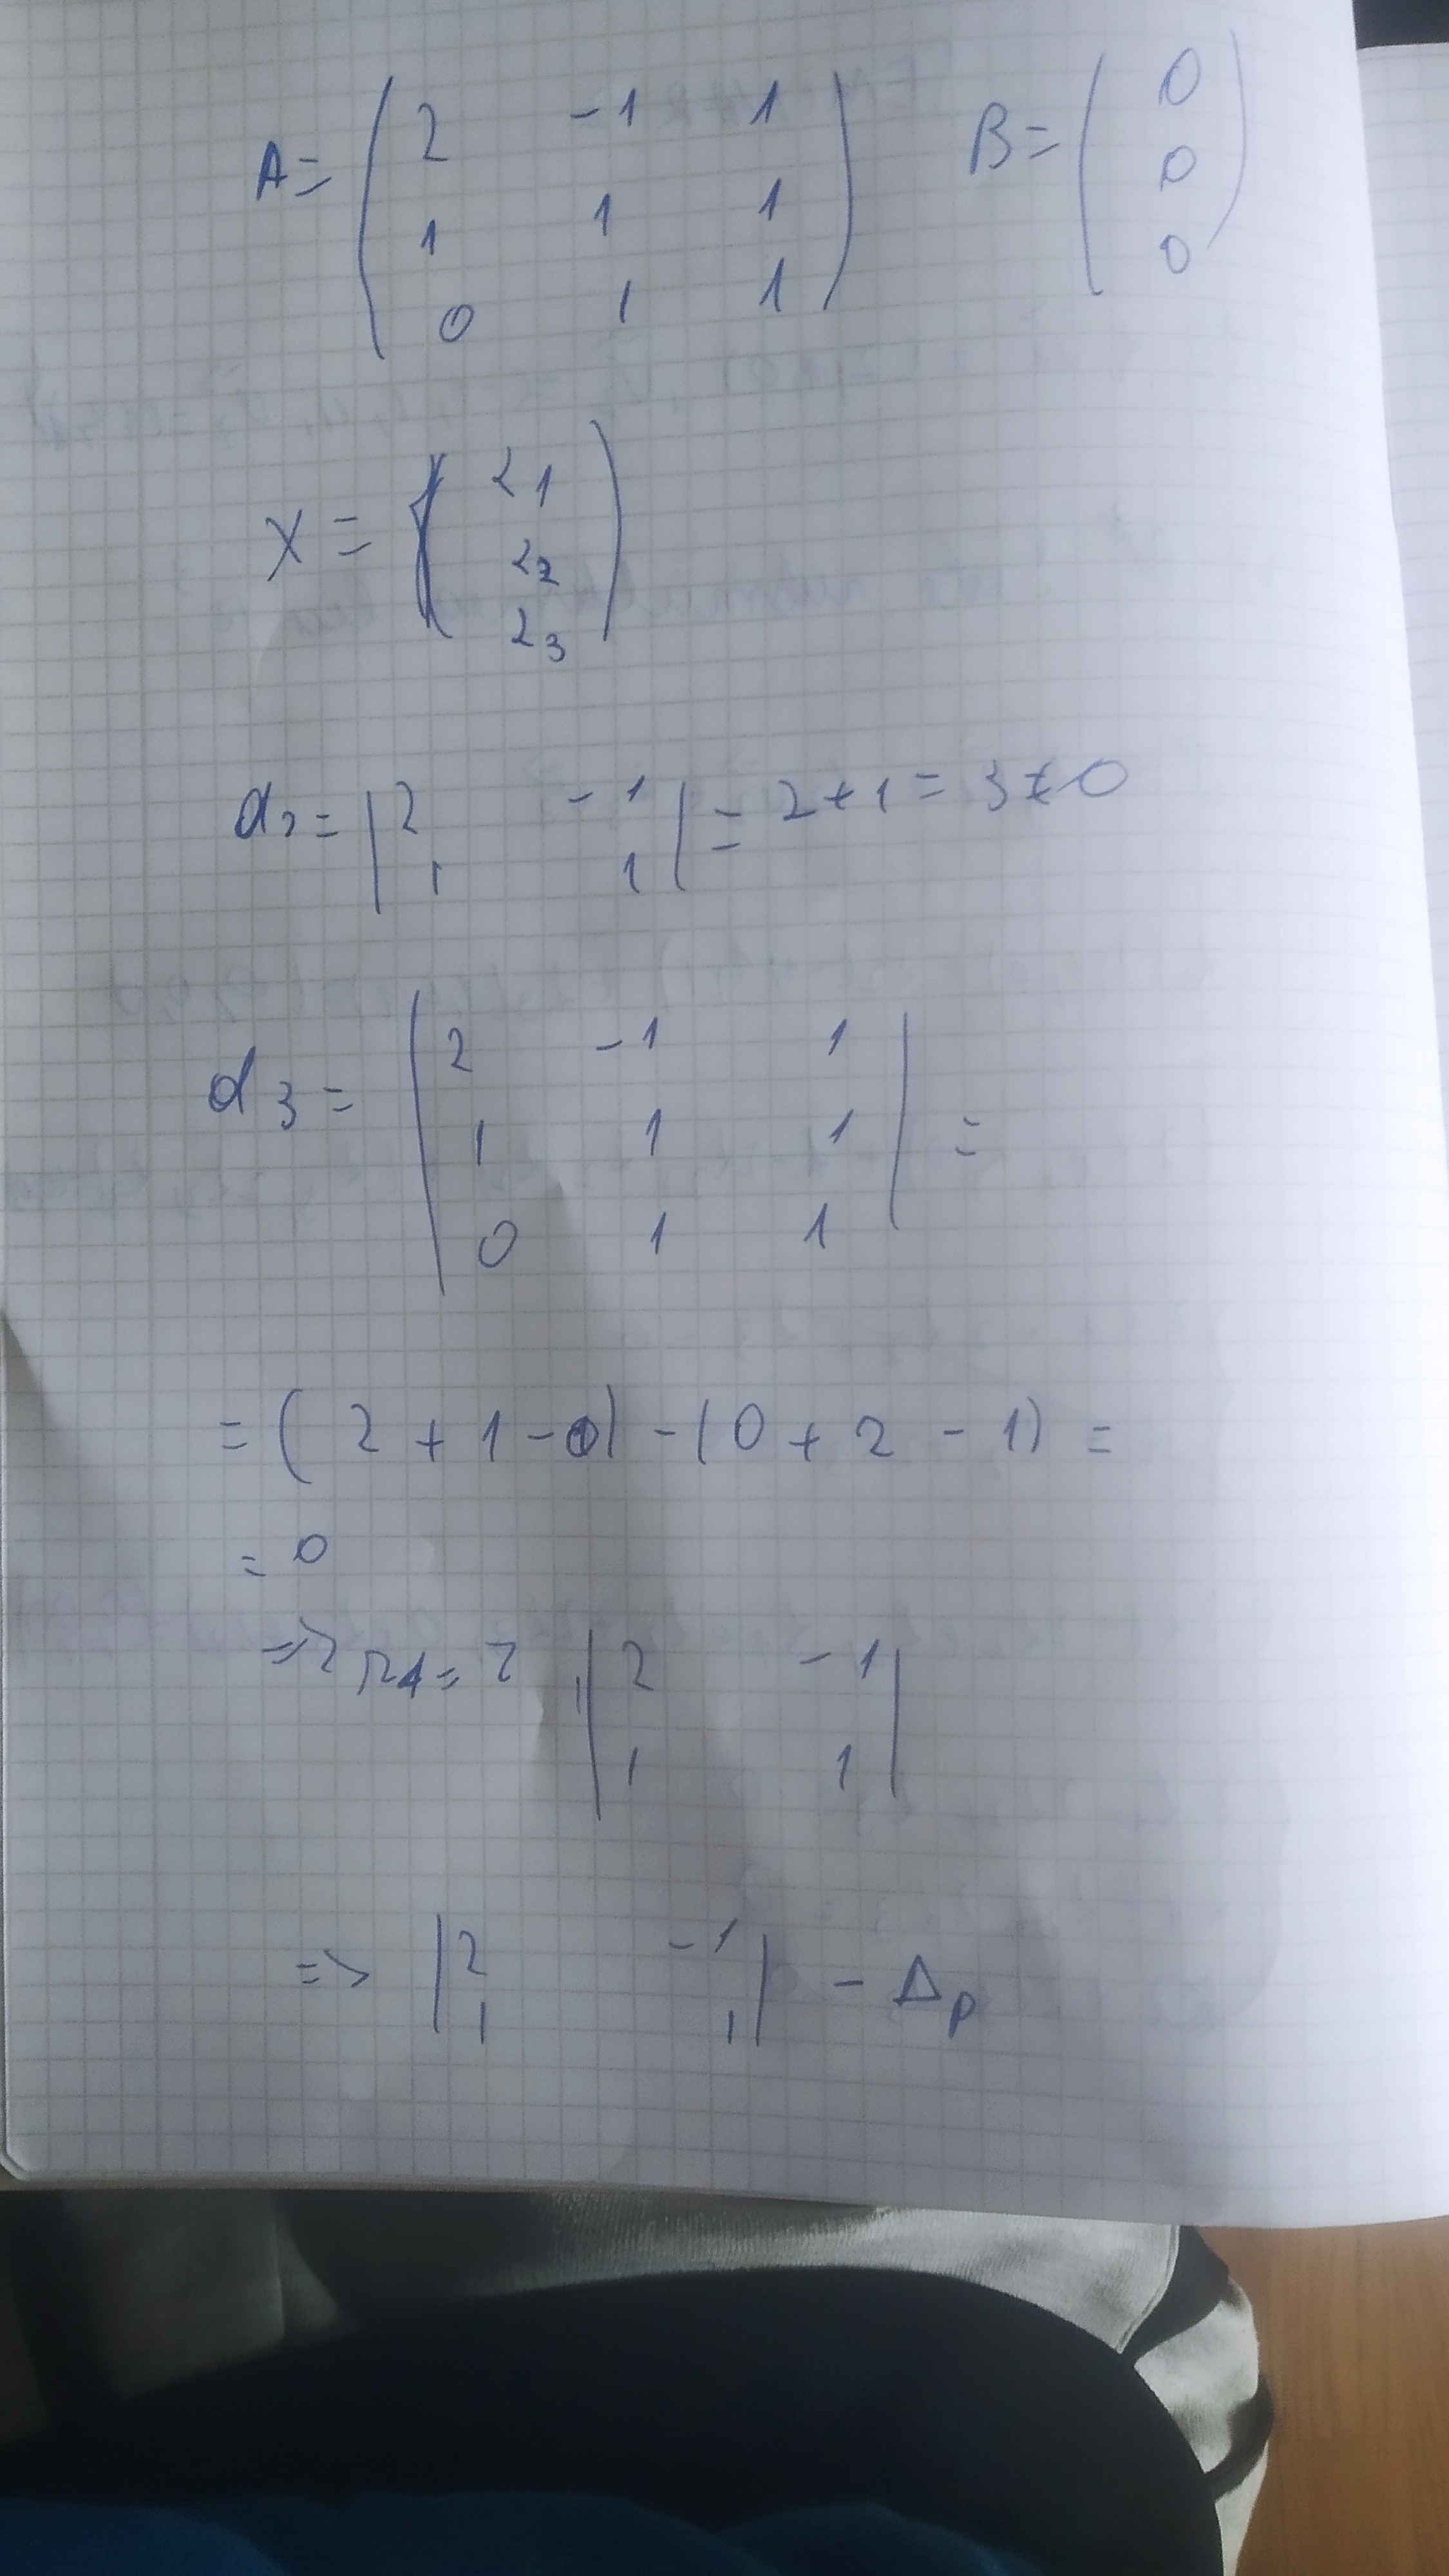 A = ( 2 -1 1 B = ( 0
1 1 1 0
0 1 1 ) 0 )
X = ( α1
α2
α3 )
d2 = | 2 -1
1 1 | = 2 + 1 = 3 ≠ 0
d3 = | 2 -1 1
1 1 1
0 1 1 | =
= ( 2 + 1 - 0) - (0 + 2 - 1) =
= 0
=> rA = 2 , | 2 -1
1 1 |
=> | 2 -1
1 1 | - Δp